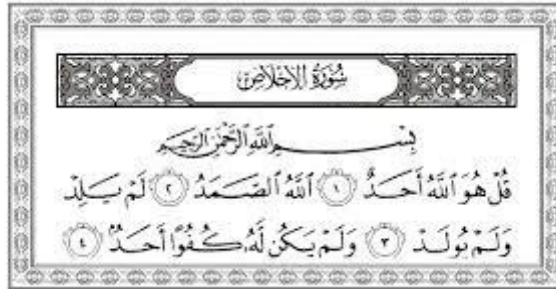 سُورَةُ الإِخْلَاصِ
بِسْمِ اللَّهِ الرَّحْمَٰنِ الرَّحِيمِ
قُلْ هُوَ اللَّهُ أَحَدٌ ١ اللَّهُ الصَّمَدُ ٢ لَمْ يَلِدْ
وَلَمْ يُولَدْ ٣ وَلَمْ يَكُن لَّهُ كُفُوًا أَحَدٌ ٤